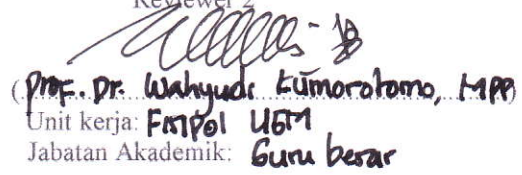 Reviewer 2
(Prof. Dr. Wahyudi Kumorotomo, MPP)
Unit kerja: FISIPOL UGM
Jabatan Akademik: Guru besar